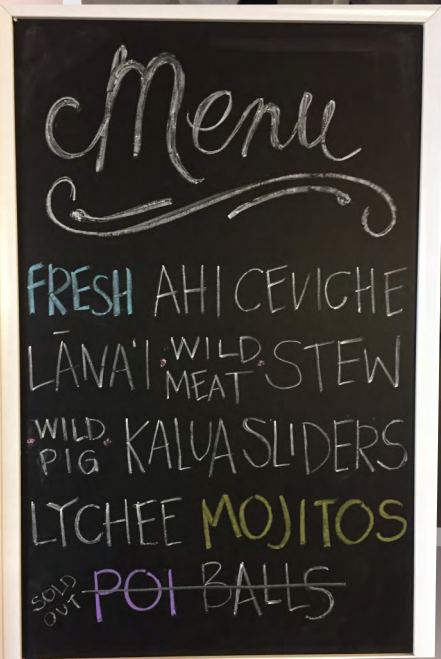 Menu
FRESH AHI CEVICHE
LĀNA'I ·WILD MEAT· STEW
·WILD PIG· KALUA SLIDERS
LYCHEE MOJITOS
SOLD OUT POI BALLS